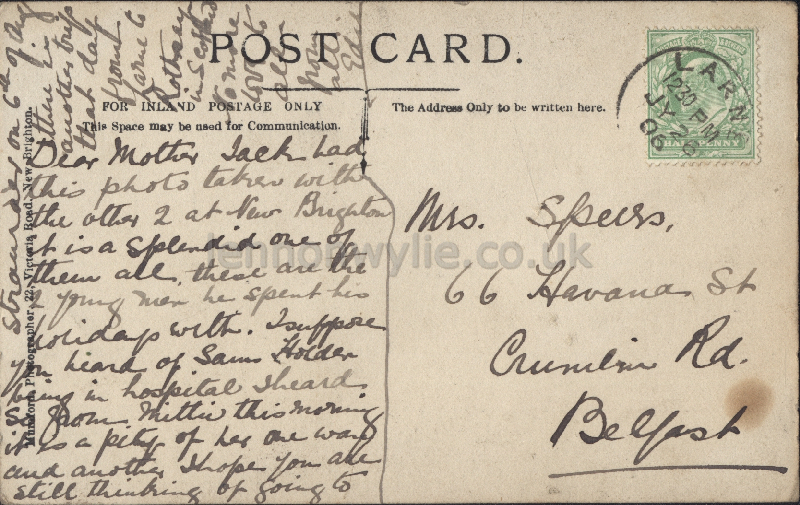 POST CARD.
FOR INLAND POSTAGE ONLY
This Space may be used for Communication.
The Address Only to be written here.
LARN
12 30 PM
JY 26
06
HALFPENNY
Dear Mother Jack had
this photo taken with
the other 2 at New Brighton
it is a splendid one of
them all, these are the
2 young men he spent his
holidays with. I suppose
you heard of Sam Holder
being in hospital I heard
so from Mittie this morning
it is a pity of her one way
and another I hope you are
still thinking of going to
Stranraer on 6th of Aug
there is
another trip
that day
from
Larne to
Rothesay
in Scotland
no more
love to
all
from
Mrs. Speers,
66 Havana St
Crumlin Rd.
Belfast
Photographer, 22, Victoria Road, New Brighton.
lennonwylie.co.uk